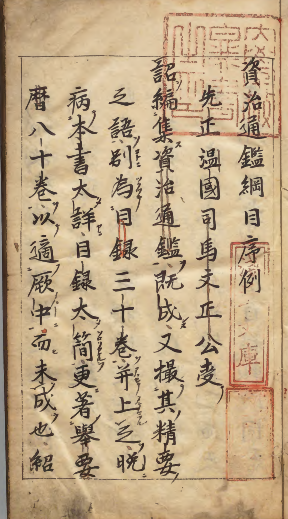 資治通鑑綱目序例
先正溫國司馬文正公受
詔編集資治通鑑既成又撮其精要
之語別為目録三十卷并上之晩
病本書太詳目録太簡更著舉要
暦八十卷以適厥中而未成也紹